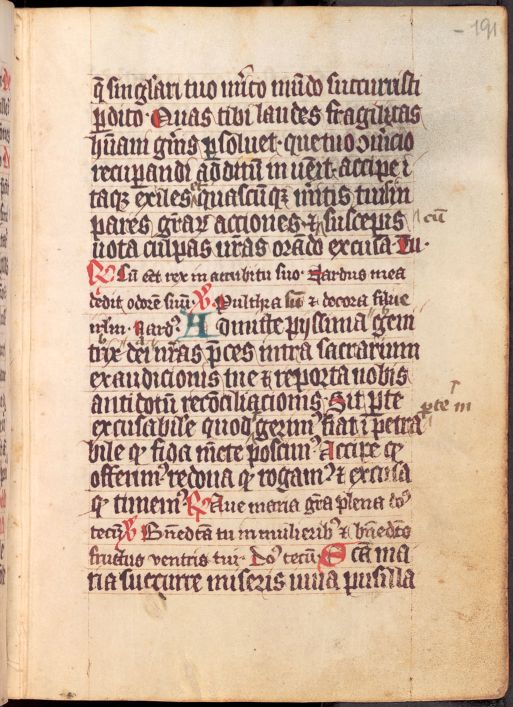 191
q̄ singlari tuo m̄ito mūdo succurristi
ꝑdito. Quas tibi laudes fragilitas
hūani gn̄is ꝑsoluet. que tuo om̄icio
recuꝑandi aditū inuēit. accipe i
taqꝫ exiles et quascūqꝫ m̄itis tuis in
pares gr̄aꝝ acciones ⁊ susceptis cū
uota culpas nr̄as orādo excusa Tu.
℟ Cū eēt rex in accubitu suo. Nardus mea
dedit odorē suū. ℣ Pulchra sū ⁊ decora filiae
irl̄m. Nardꝰ. Admitte pyssima gein
trix dei nr̄as p̄ces intra sacrarium
exaudicionis tue ⁊ reporta nobis
antidotū recōciliacionis. Sit ꝑ te
ꝑ te in
excusabile quod gerimꝰ fiat īpetra
bile qͦ fida mēte poscimꝰ. Accipe qͦ
offerimꝰ redona qͦ rogamꝰ ⁊ excusa
qͦ timemꝰ. ℟ Aue maria gr̄a plena do᷒
tecū ℣ Bn̄edcā tu in mulieribꝰ ⁊ bn̄edcō
fructus ventris tui. Do᷒ tecū. Scā ma
ria succurre miseris iuua pusilla